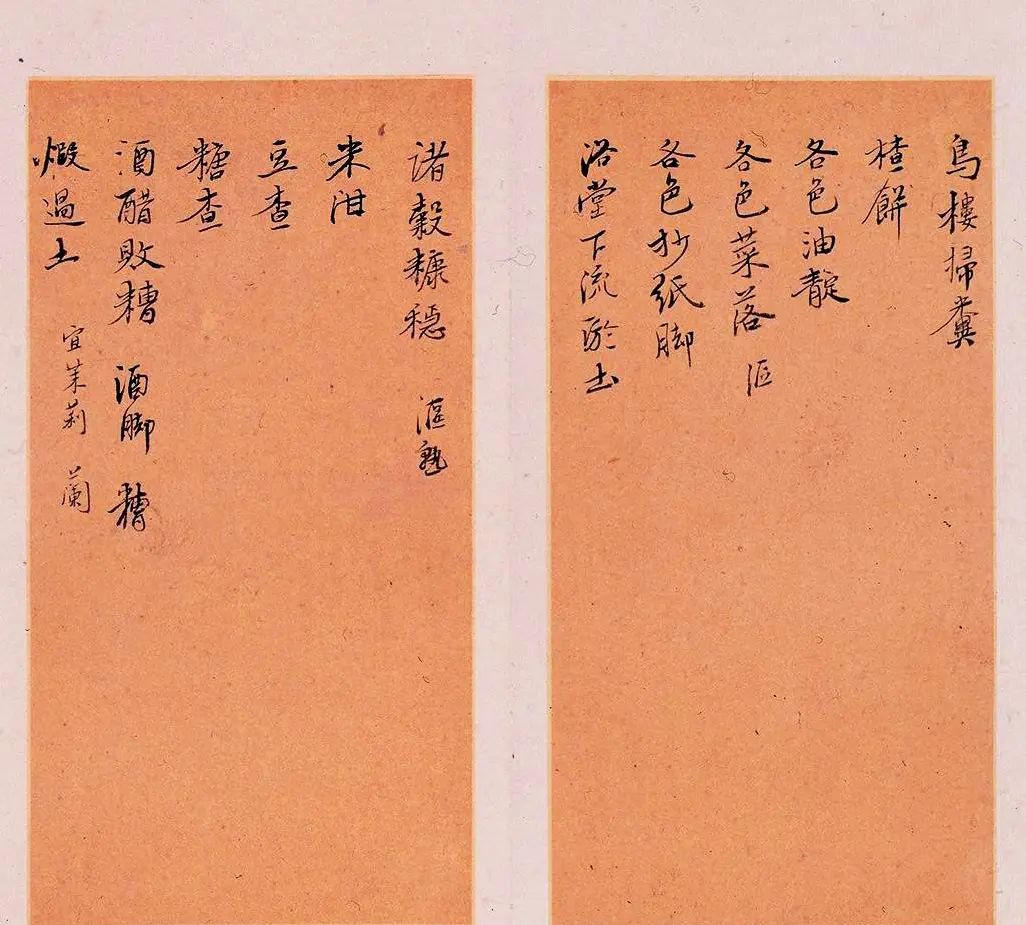 鳥樓掃糞
楂餅
各色油靛
各色菜落 漚
各色抄紙脚
浴堂下流淤土
諸穀糠穏 漚熟
米泔
豆查
糖查
酒醋敗糟 酒脚 糟
煆過土 宜茉莉 蘭